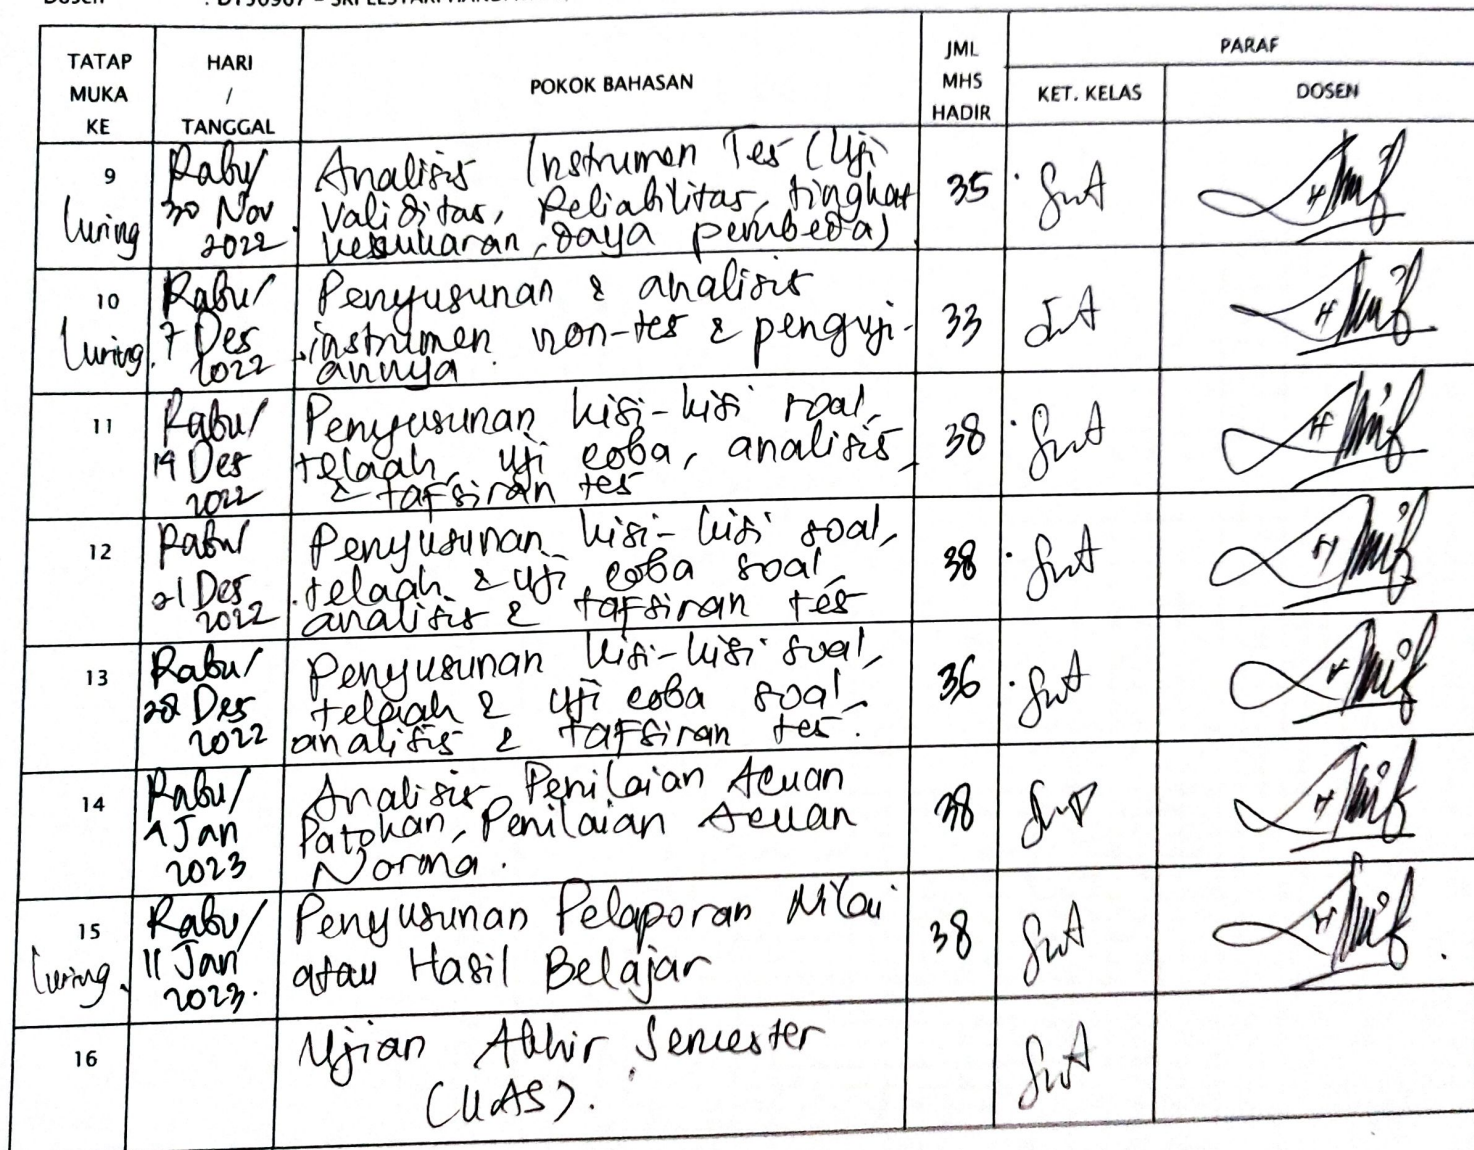 TATAP MUKA KE
HARI / TANGGAL
POKOK BAHASAN
JML MHS HADIR
PARAF
KET. KELAS
DOSEN
9
luring
Rabu/
30 Nov
2022
Analisis Instrumen Tes (Uji
Validitas, Reliabilitas, tingkat
kesukaran, daya pembeda)
35
10
luring.
Rabu/
7 Des
2022
Penyusunan & analisis
instrumen non-tes & penguji-
annya.
33
11
Rabu/
14 Des
2022
Penyusunan kisi-kisi soal,
telaah, uji coba, analisis,
& tafsiran tes
38
12
Rabu/
21 Des
2022
Penyusunan kisi-kisi soal,
telaah & uji coba soal,
analisis & tafsiran tes
38
13
Rabu/
28 Des
2022
Penyusunan kisi-kisi soal,
telaah & uji coba soal,
analisis & tafsiran tes.
36
14
Rabu/
4 Jan
2023
Analisis Penilaian Acuan
Patokan, Penilaian Acuan
Norma.
38
15
luring.
Rabu/
11 Jan
2023.
Penyusunan Pelaporan Nilai
atau Hasil Belajar
38
16
Ujian Akhir Semester
(UAS).